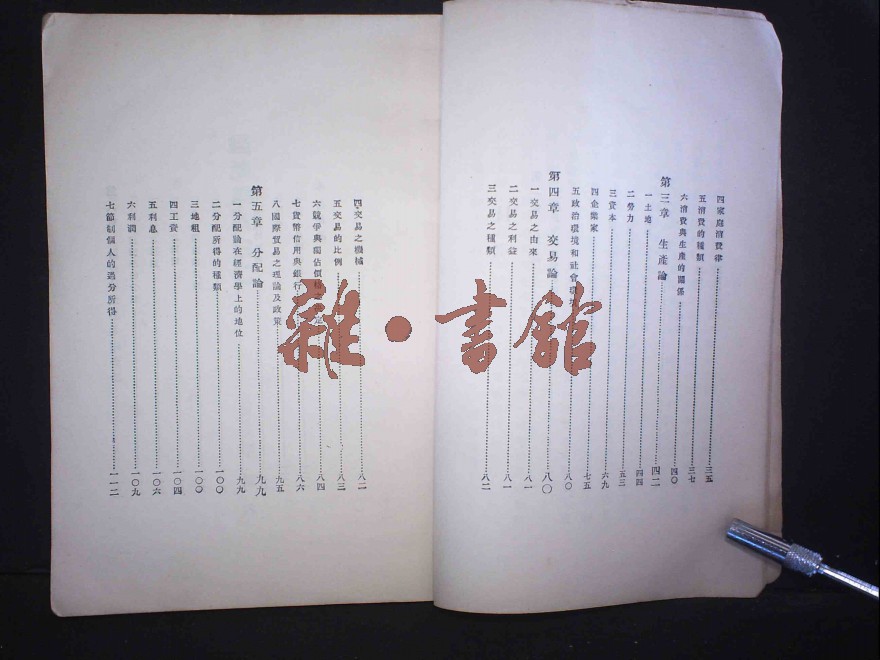 四家庭消費律……三五
五消費的種類……三七
六消費與生產的關係……四〇
第三章 生產論……四二
一土地……四四
二勞力……五三
三資本……六九
四企業家……七五
五政治環境和社會環境……八〇
第四章 交易論……八〇
一交易之由來……八一
二交易之利益……八一
三交易之種類……八二
四交易之機械……八二
五交易的比例……八三
六競爭與獨佔價格……八四
七貨幣信用與銀行……八六
八國際貿易之理論及政策……九五
第五章 分配論……九九
一分配論在經濟學上的地位……九九
二分配所得的種類……一〇〇
三地租……一〇〇
四工資……一〇四
五利息……一〇六
六利潤……一〇九
七節制個人的過分所得……一一二
雜·書館